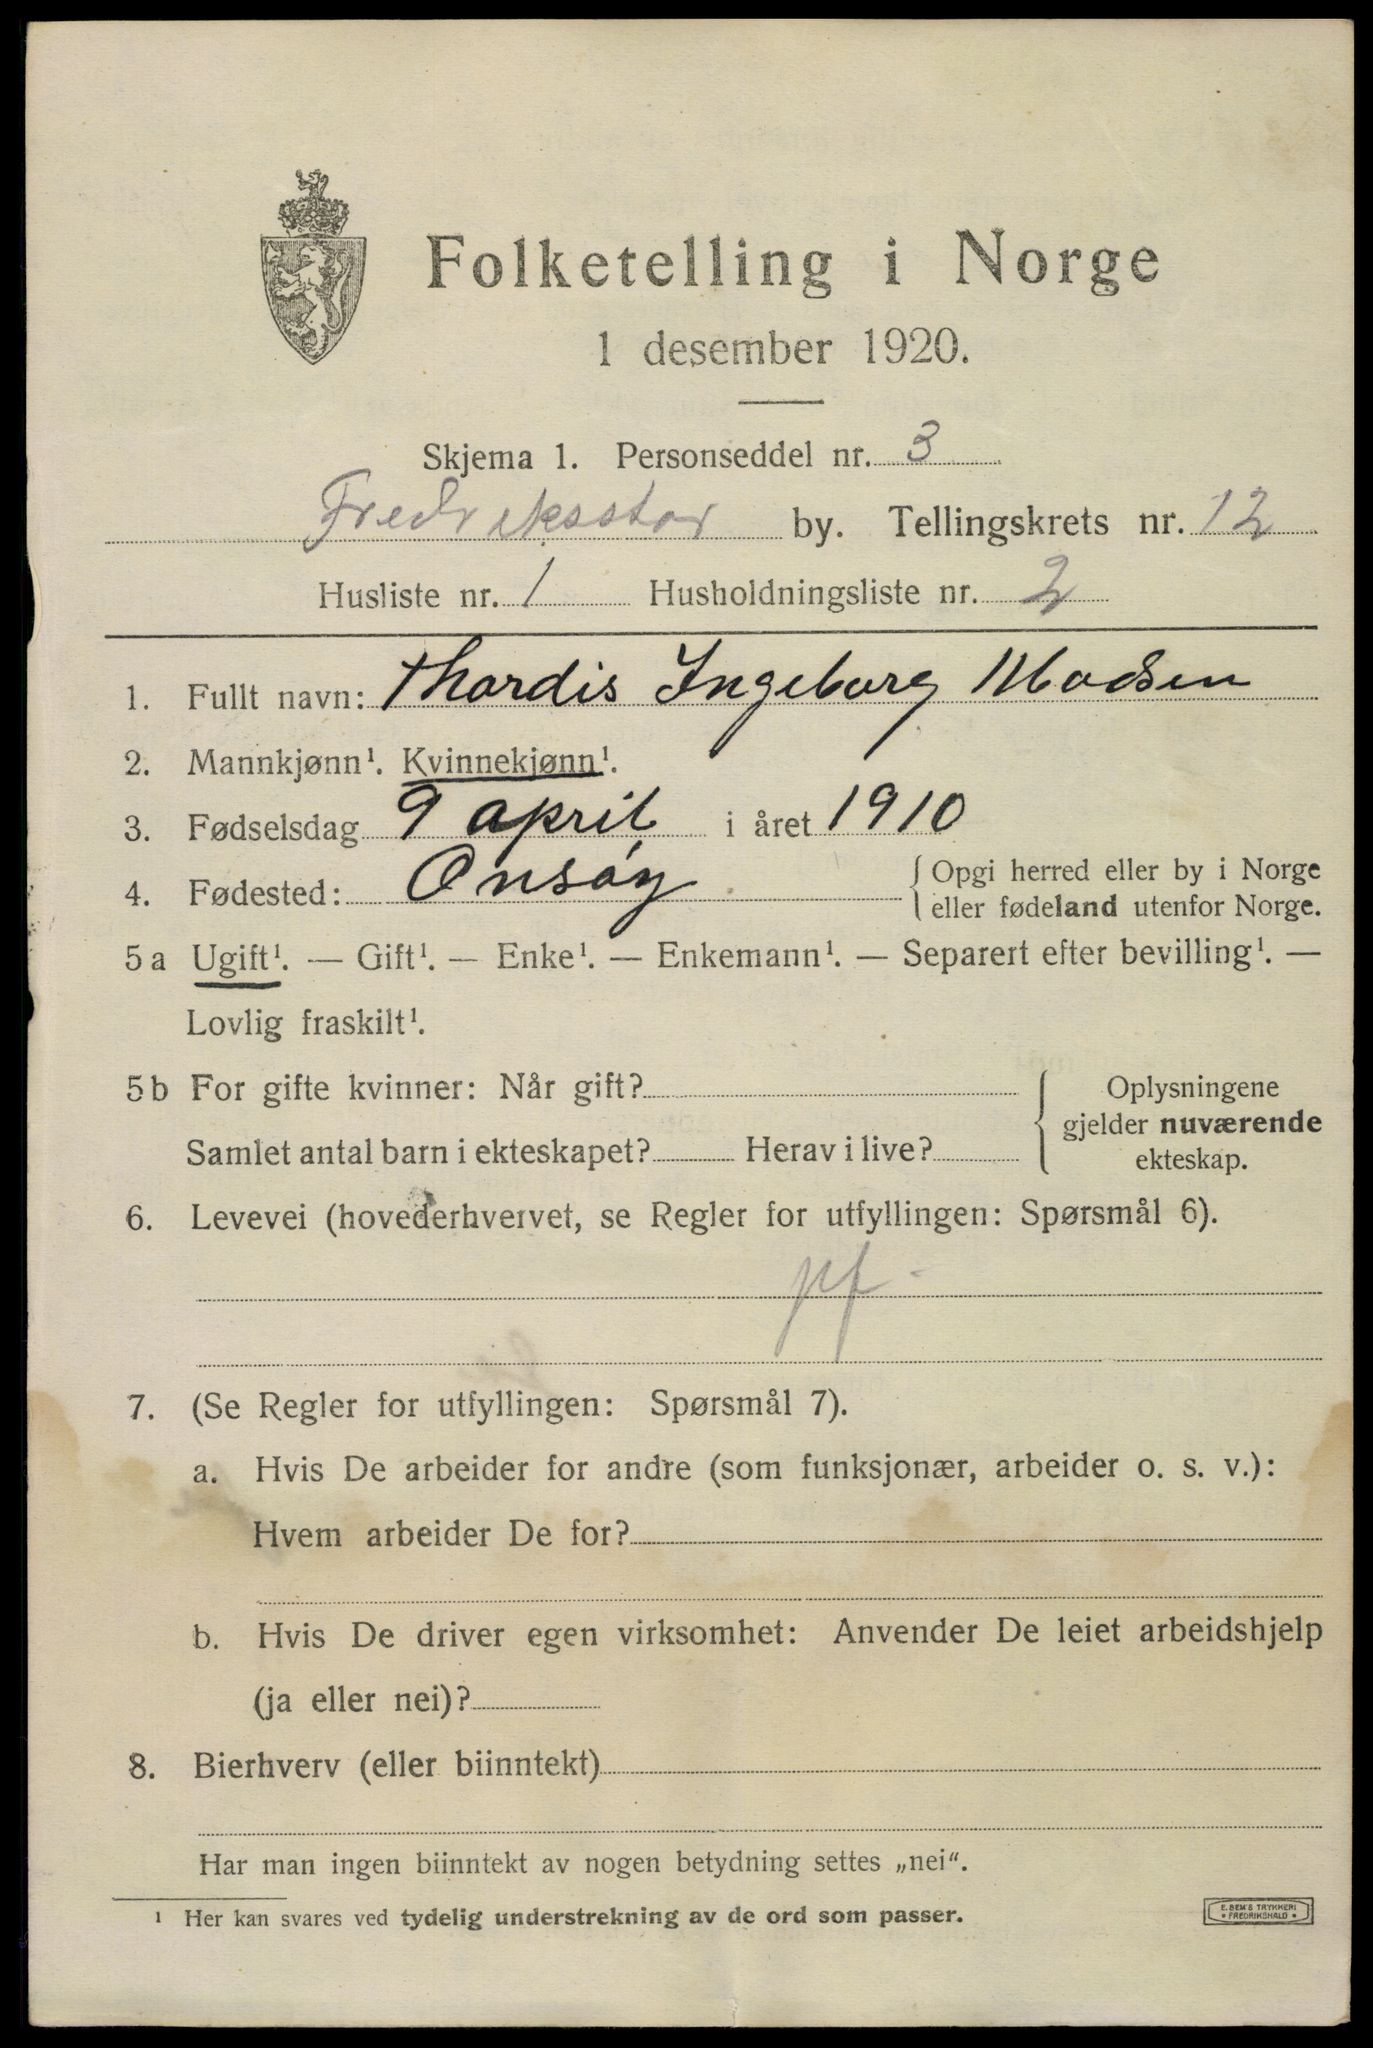 Folketelling i Norge
1 desember 1920.
Skjema 1. Personseddel nr. 3
Fredriksstad by. Tellingskrets nr. 12
Husliste nr. 1 Husholdningsliste nr. 2
1. Fullt navn: Thordis Ingeborg Madsen
2. Mannkjønn¹. Kvinnekjønn¹.
3. Fødselsdag 9 april i året 1910
4. Fødested: Onsøy { Opgi herred eller by i Norge
eller fødeland utenfor Norge.
5a Ugift¹. — Gift¹. — Enke¹. — Enkemann¹. — Separert efter bevilling¹. —
Lovlig fraskilt¹.
5b For gifte kvinner: Når gift? { Oplysningene
gjelder nuværende
Samlet antal barn i ekteskapet? Herav i live? ekteskap.
6. Levevei (hovederhvervet, se Regler for utfyllingen: Spørsmål 6).
pf -
7. (Se Regler for utfyllingen: Spørsmål 7).
a. Hvis De arbeider for andre (som funksjonær, arbeider o. s. v.):
Hvem arbeider De for?
b. Hvis De driver egen virksomhet: Anvender De leiet arbeidshjelp
(ja eller nei)?
8. Bierhverv (eller biinntekt)
Har man ingen biinntekt av nogen betydning settes „nei“.
¹ Her kan svares ved tydelig understrekning av de ord som passer.
E. SEM'S TRYKKERI
• FREDRIKSHALD •